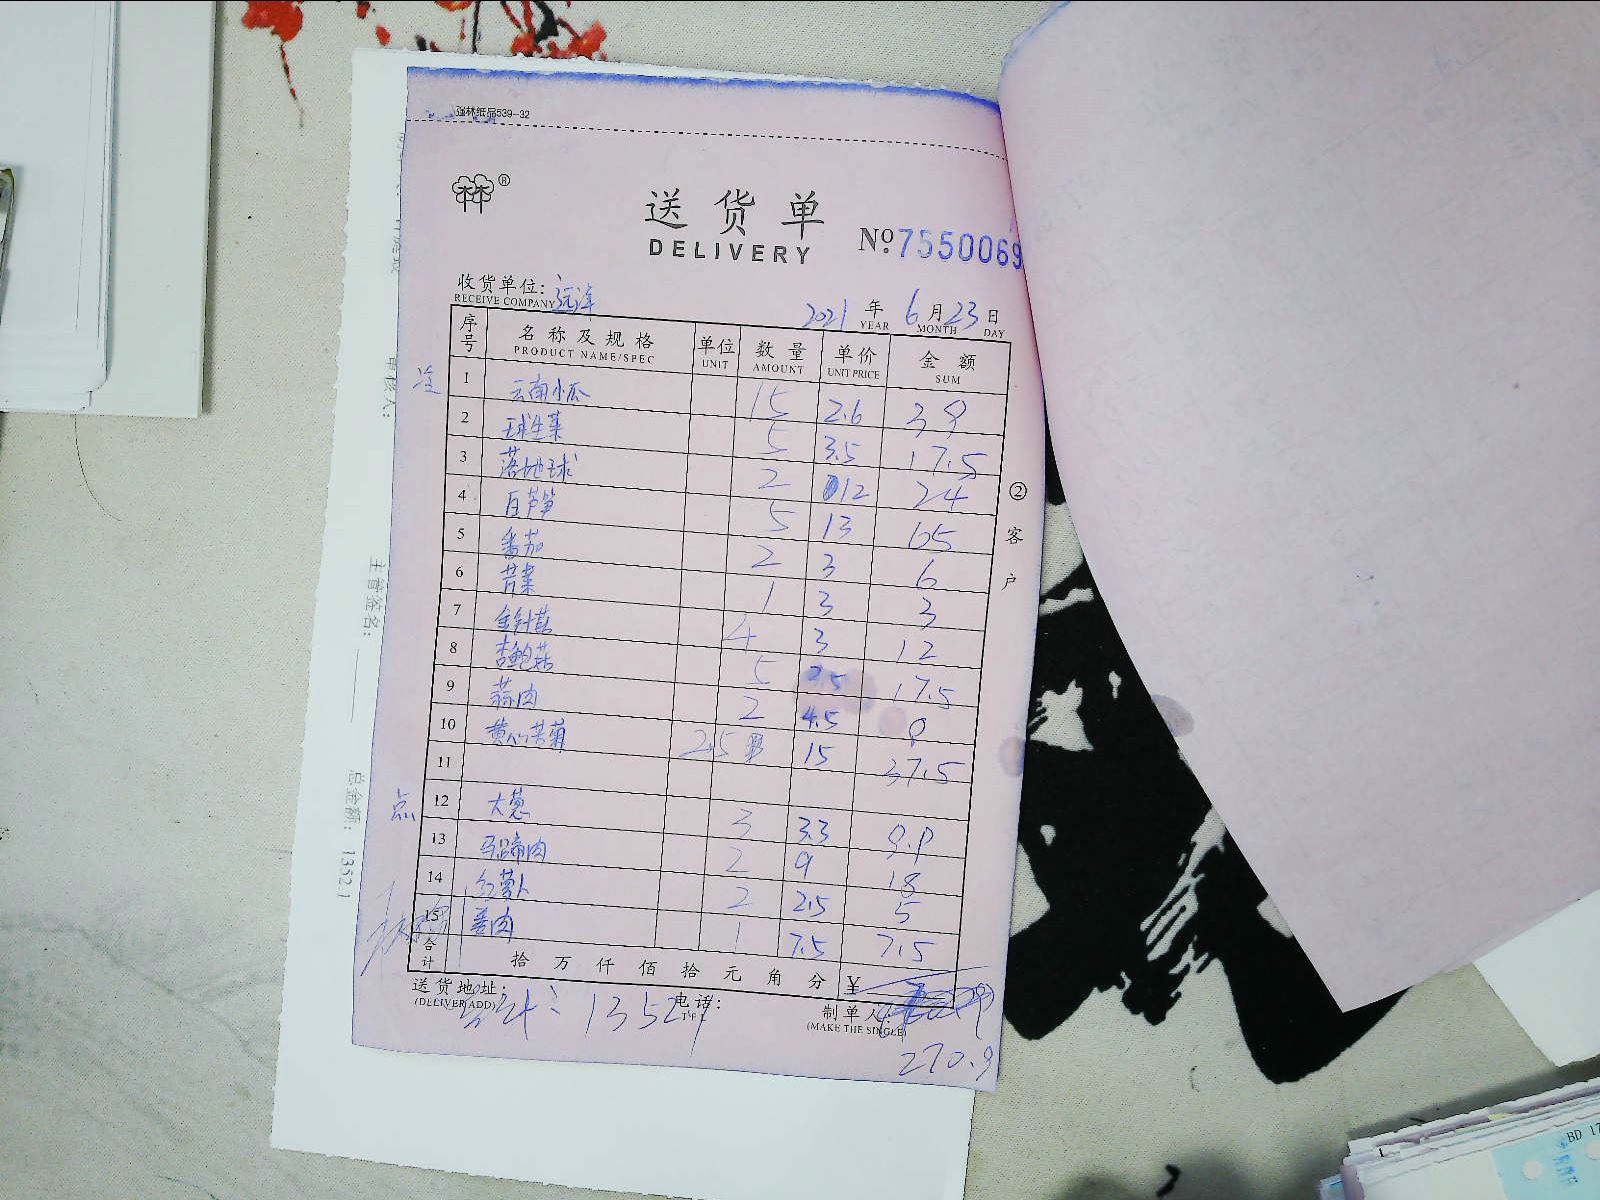 强林纸品539-32
送货单
DELIVERY
№:7550069
收货单位: 远洋
RECEIVE COMPANY
2021 年 6 月 23 日
YEAR MONTH DAY
序号 名称及规格 单位 数量 单价 金额
PRODUCT NAME/SPEC UNIT AMOUNT UNIT PRICE SUM
1 云南小瓜 15 2.6 39
2 球生菜 5 3.5 17.5
3 落地球 2 12 24
4 白芦笋 5 13 65
5 番茄 2 3 6
6 芹菜 1 3 3
7 金针菇 4 3 12
8 杏鲍菇 5 3.5 17.5
9 蒜肉 2 4.5 9
10 黄心苦菊 2.5 15 37.5
11
点
12 大葱 3 3.3 9.9
13 马蹄肉 2 9 18
14 红萝卜 2 2.5 5
15 姜肉 1 7.5 7.5
合计 拾 万 仟 佰 拾 元 角 分 ¥
送货地址:
(DELIVER ADD)
电话:
TEL
制单人:
(MAKE THE SINGLE)
270.9
② 客户
主管签名:
总金额: 1352.1
BD 17